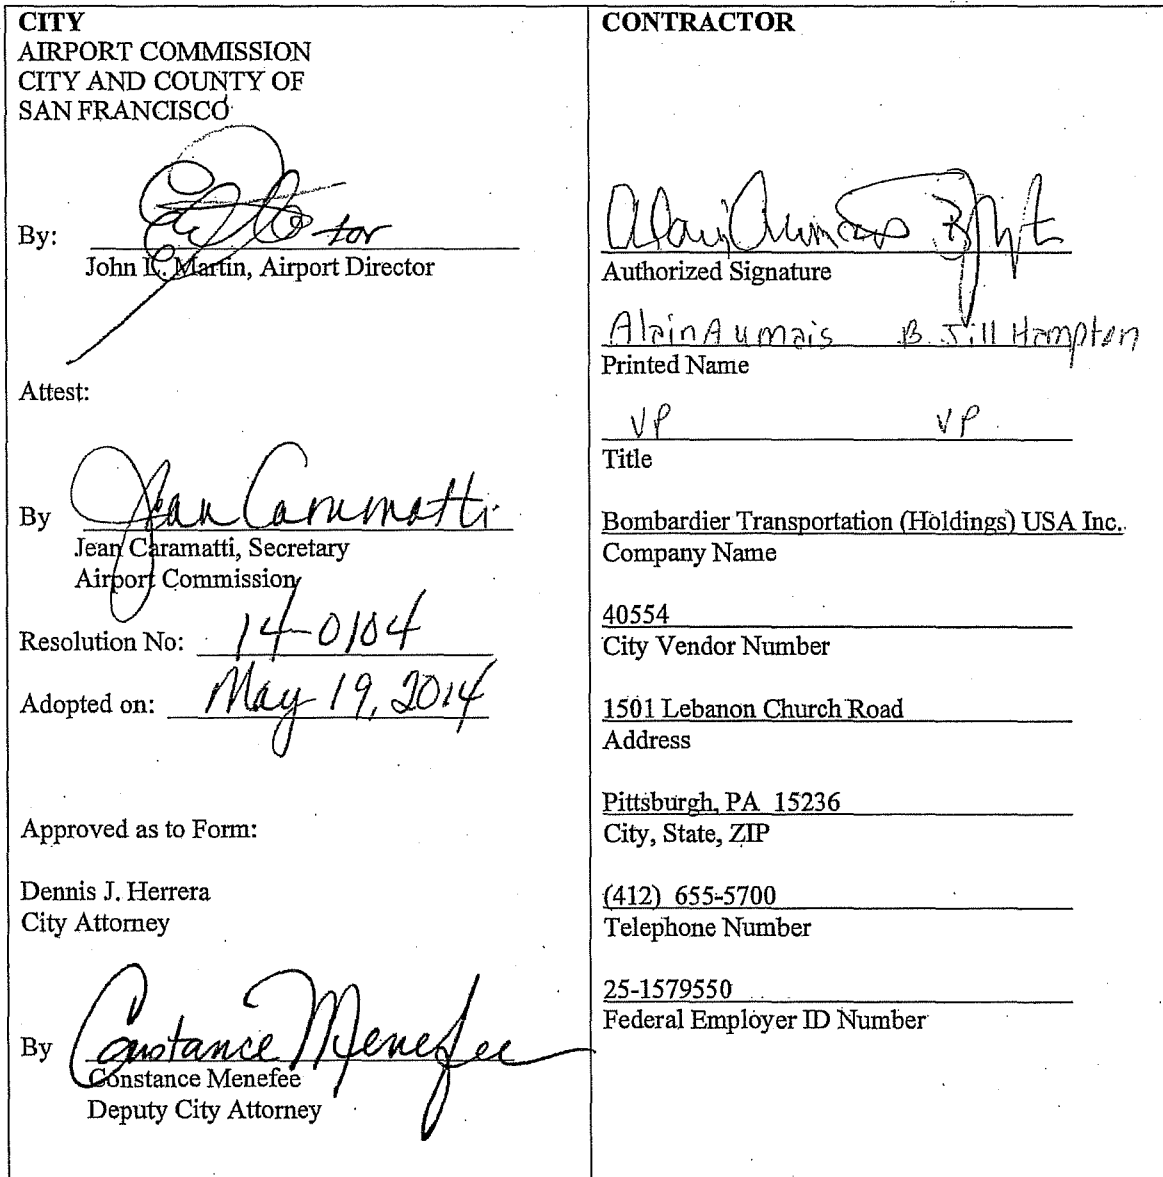 CITY
AIRPORT COMMISSION
CITY AND COUNTY OF
SAN FRANCISCO
By: for
John L. Martin, Airport Director
Attest:
By Jean Caramatti
Jean Caramatti, Secretary
Airport Commission
Resolution No: 14-0104
Adopted on: May 19, 2014
Approved as to Form:
Dennis J. Herrera
City Attorney
By Constance Menefee
Constance Menefee
Deputy City Attorney
CONTRACTOR
Alain Aumais
Authorized Signature
Alain Aumais B. Jill Hampton
Printed Name
VP VP
Title
Bombardier Transportation (Holdings) USA Inc.
Company Name
40554
City Vendor Number
1501 Lebanon Church Road
Address
Pittsburgh, PA 15236
City, State, ZIP
(412) 655-5700
Telephone Number
25-1579550
Federal Employer ID Number